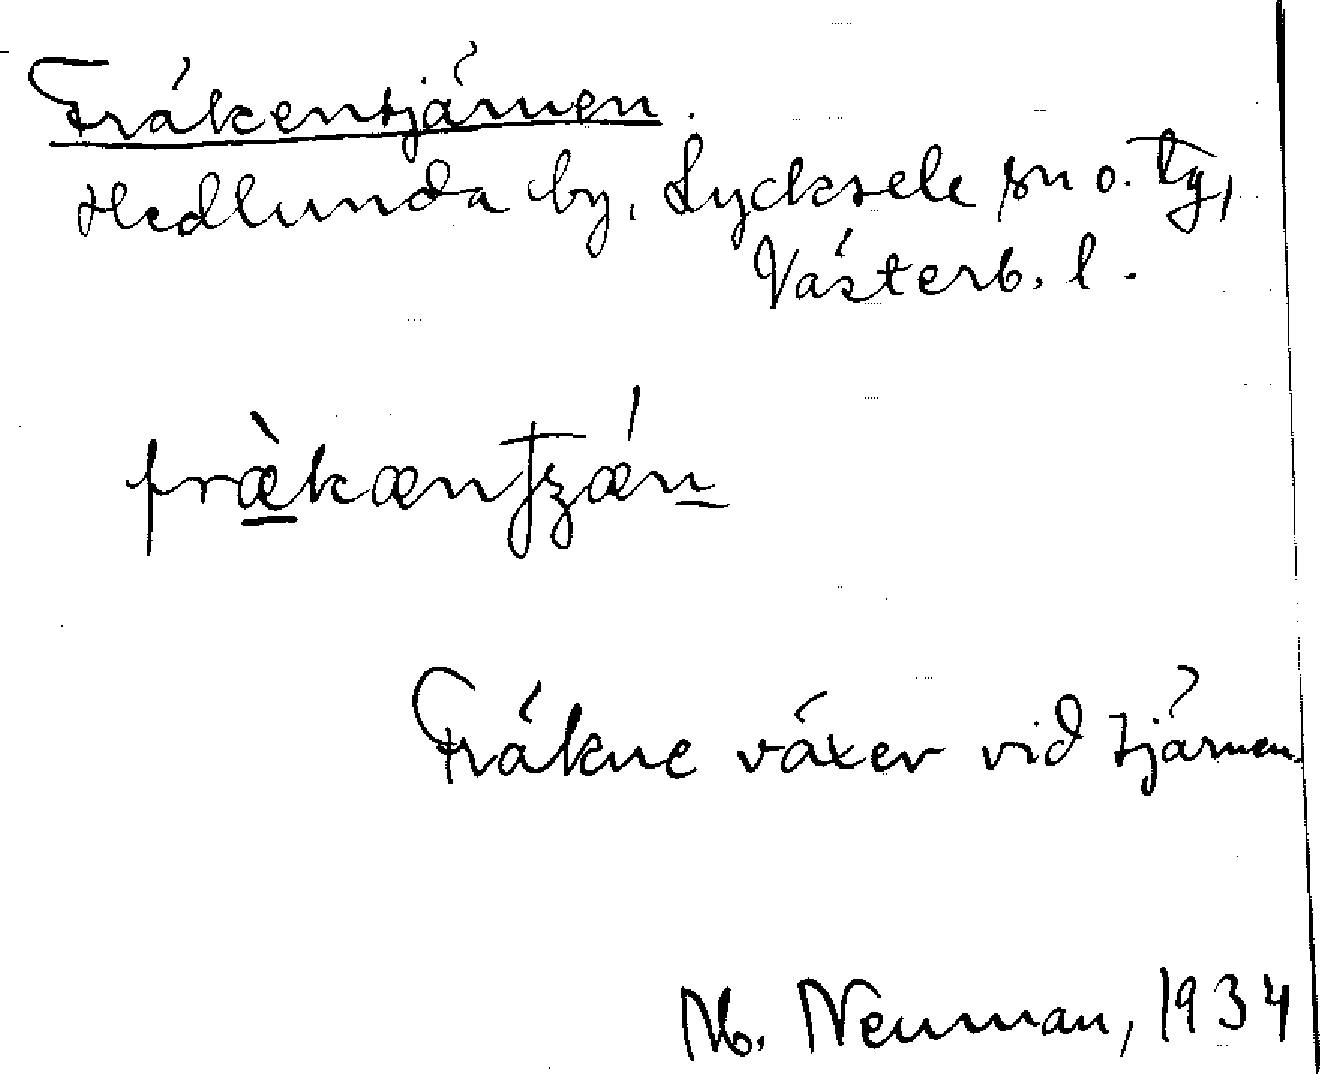 Fräkentjärnen.
Hedlunda by, Lycksele sn o. tg,
Västerb. l.
fræ̀kæntʃzǽn
Fräkne växer vid tjärnen.
M. Neuman, 1934